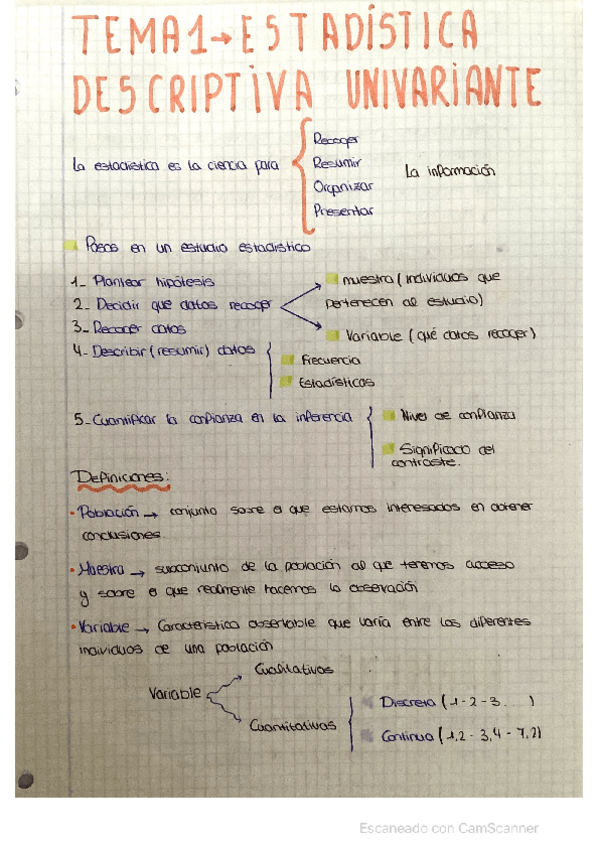 TEMA1→ESTADÍSTICA
DESCRIPTIVA UNIVARIANTE
La estadística es la ciencia para
Recoger
Resumir
Organizar
Presentar
La información
Pasos en un estudio estadístico
1_ Plantear hipótesis
2_ Decidir que datos recoger
muestra (individuos que
pertenecen al estudio)
Variable (qué datos recoger)
3_ Recoger datos
4_ Describir (resumir) datos
Frecuencia
Estadísticos
5_ Cuantificar la confianza en la inferencia
Nivel de confianza
Significado del
contraste.
Definiciones:
• Población → conjunto sobre el que estamos interesados en obtener
conclusiones.
• Muestra → subconjunto de la población al que tenemos acceso
y sobre el que realmente hacemos la observación
• Variable → Característica observable que varía entre los diferentes
individuos de una población
Variable
Cualitativas
Cuantitativas
Discreta (1 - 2 - 3 ... )
Continua (1,2 - 3,4 - 7,2)
Escaneado con CamScanner